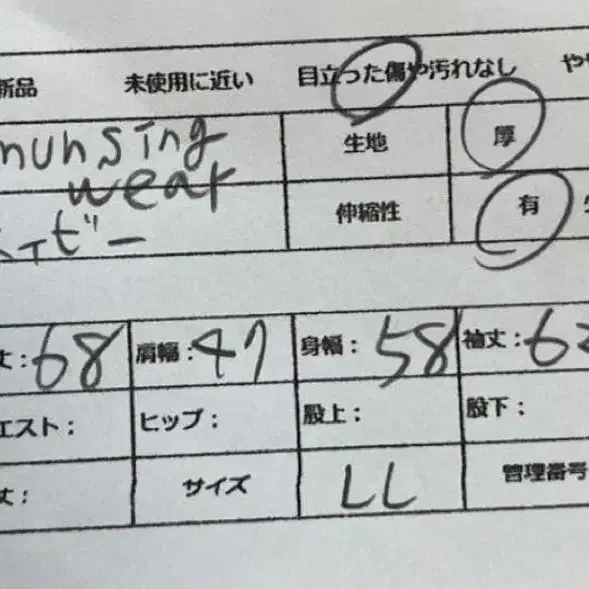 新品 未使用に近い 目立った傷や汚れなし やや
munsing wear 生地 厚
ネイビー 伸縮性 有
丈:68 肩幅:47 身幅:58 袖丈:62
エスト: ヒップ: 股上: 股下:
丈: サイズ LL 管理番号